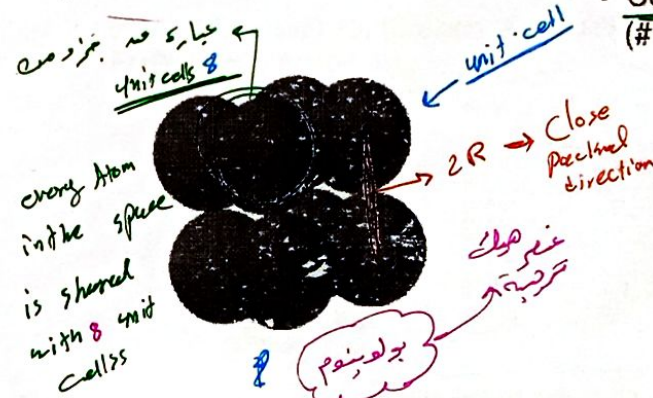 عبارة عن جزء من
8 unit cells
unit cell
(#
2R → Close
Packed
direction
every Atom
in the space
is shared
with 8 unit
cells
بولونيوم